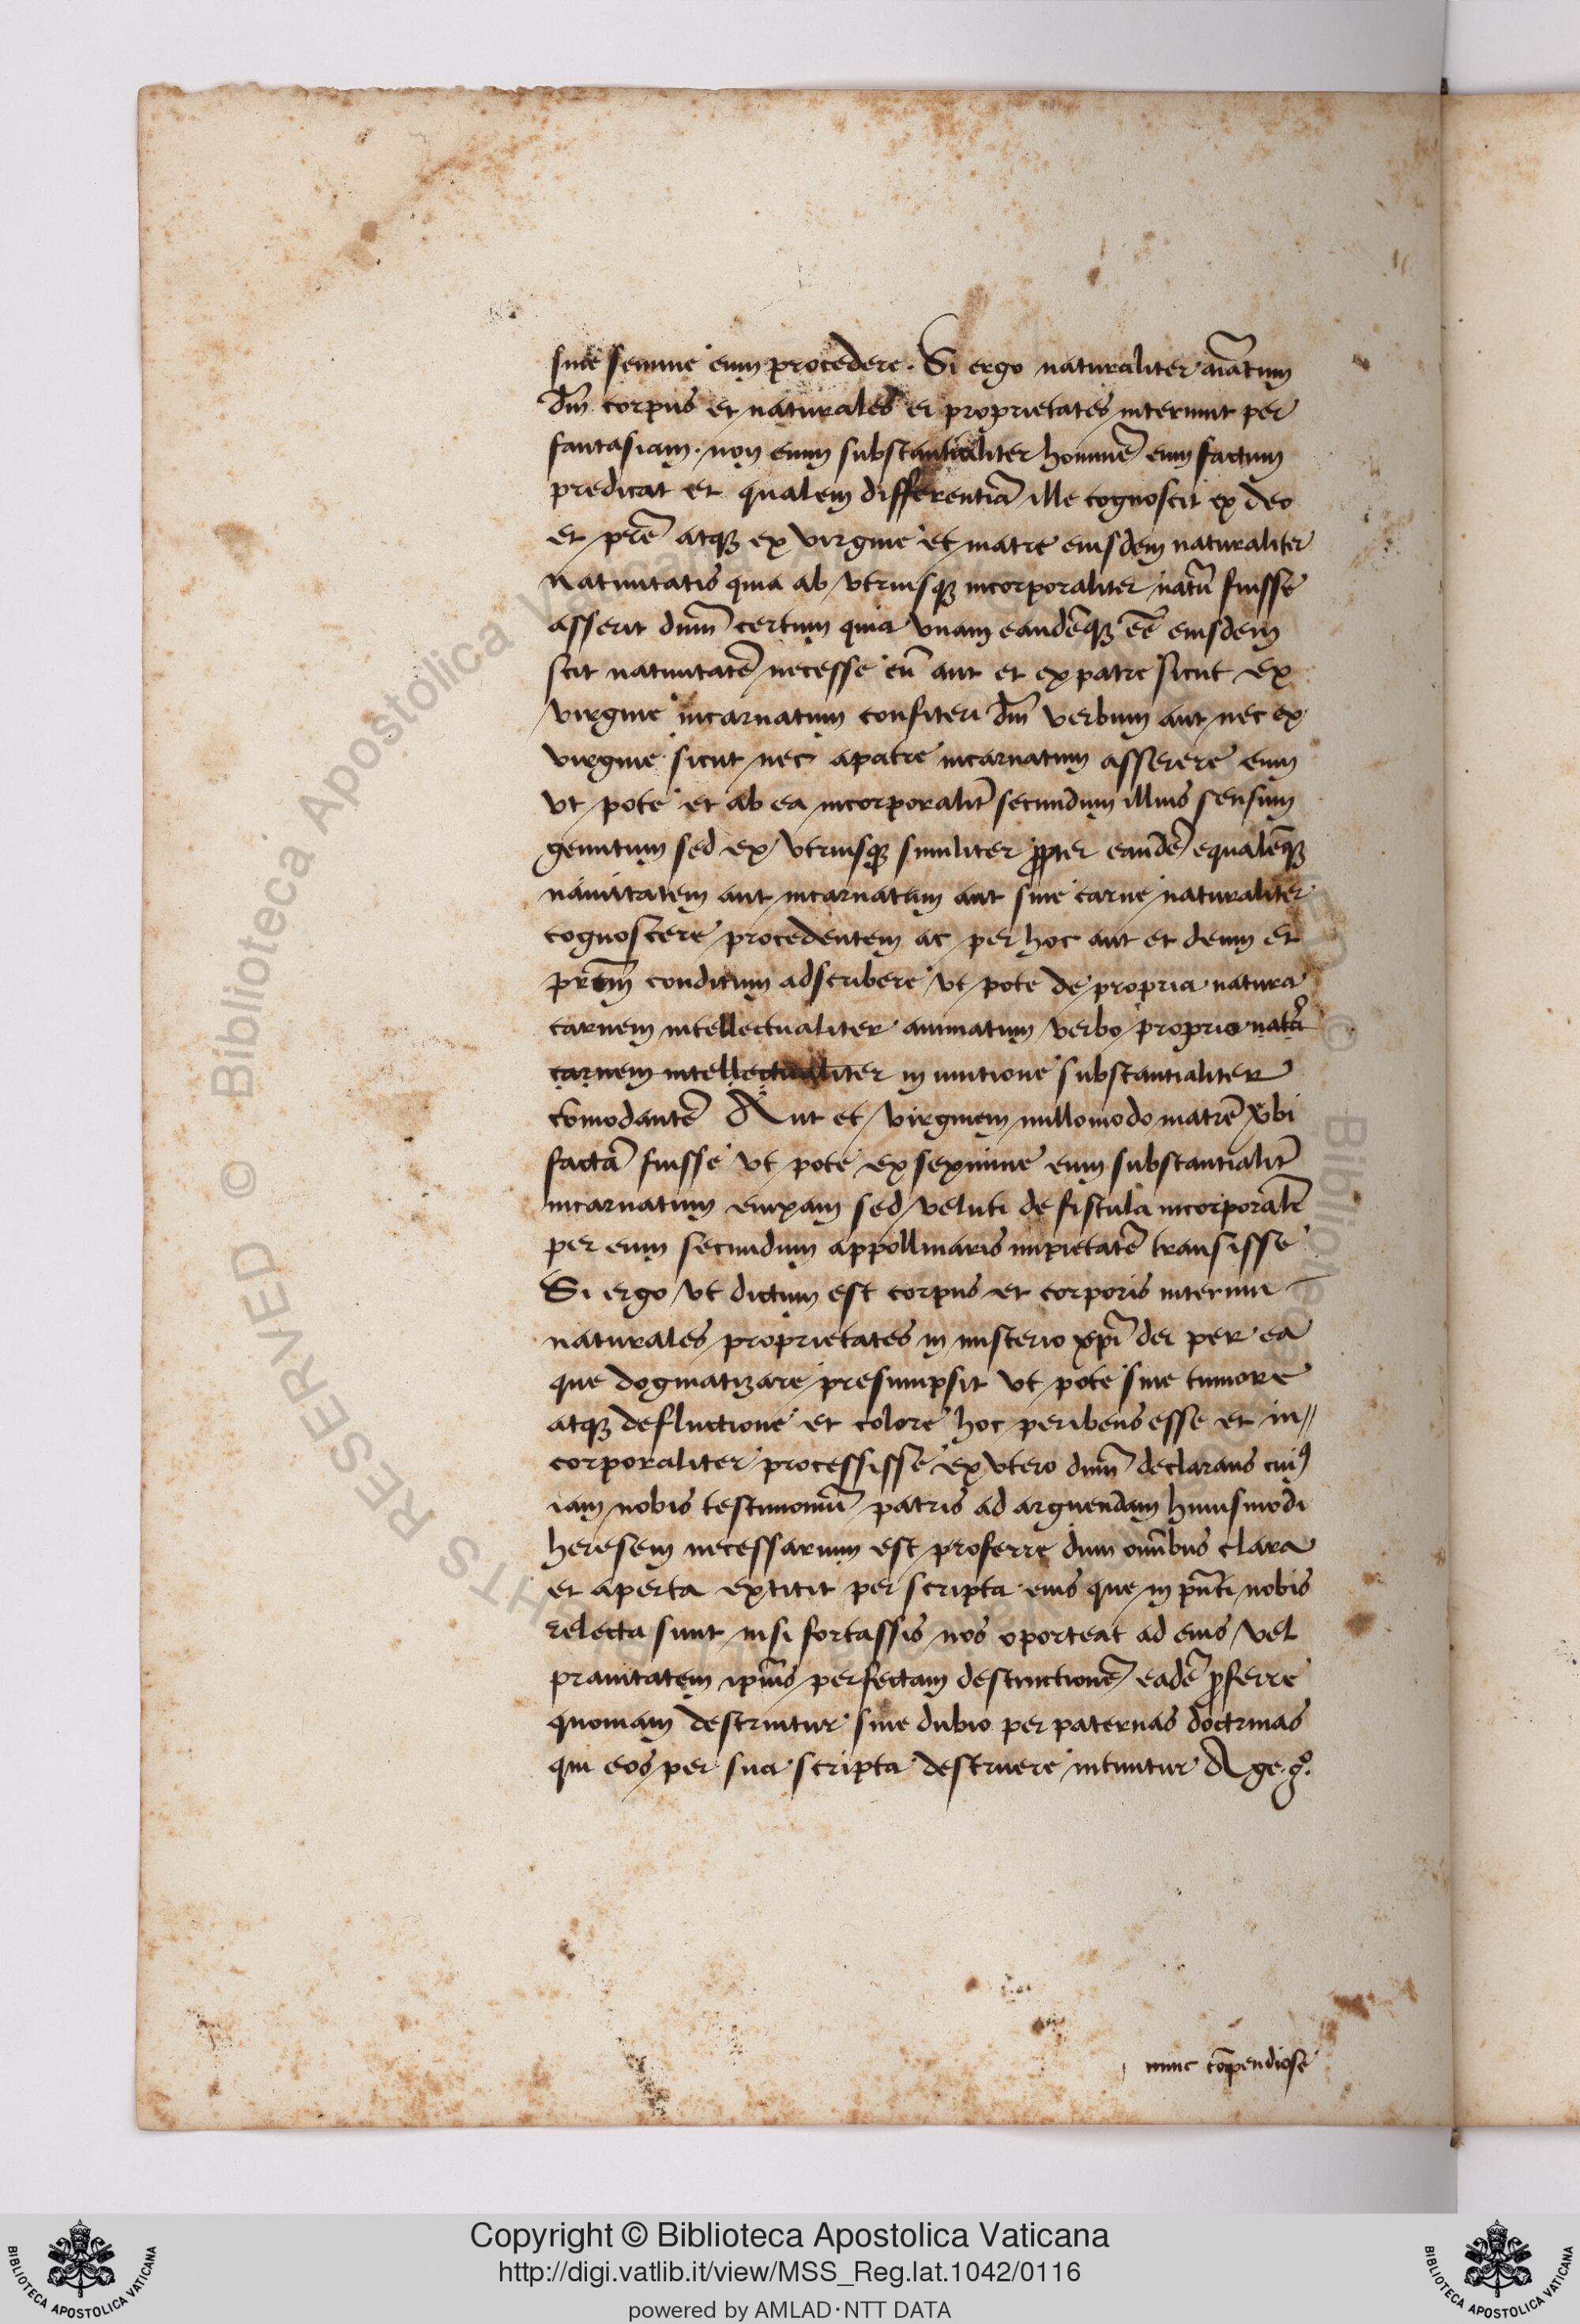 sine semine eum procedere. Si ergo naturaliter aīatum
dn̄i corpus et naturales ei proprietates interimit per
fantasiam. non enim substantialiter hominē eum factum
predicat et qualem differentiā ille cognoscit ex deo
et pr̄e atqꝫ ex virgine et matre eiusdem naturaliter
natiuitatis quia ab vtriusqꝫ incorporaliter natū fuisse
asserit dum̄ certum quia vnam eandēqꝫ eē eiusdem
scit natiuitatē necesse eū aut et ex patre sicut ex
virgine incarnatum confiteri dm̄ verbum aut nec ex
virgine sicut nec apatre incarnatum asserere eum
vt pote et ab ea incorporalit̄ secundum illius sensum
genitum sed ex vtriusqꝫ similiter pp̄ter eandē equalēqꝫ
natiuitatem aut incarnatum aut sine carne naturaliter
cognoscere procedentem ac per hoc aut et deum et
pr̄em conditum adscribere vt pote de propria natura
carnem intellectualiter animatum verbo proprio
carnem intellectualiter in unitione substantialiter
cōmodantē Aut et virginem nullomodo matrē
factā fuisse vt pote ex se eum substantialit̄
incarnatum enixam sed veluti de fistula incorporalit̄
per eum secundum appollinaris impietatē transisse
Si ergo vt dictum est corpus et corporis interimit
naturales proprietates in misterio xp̄i dei per ea
que dogmatizare presumpsit vt pote sine tumore
atqꝫ defluctione et colore hoc peribens esse et in//
corporaliter processisse ex vtero dum̄ declarans cuiꝰ
iam nobis testimoniū patris ad arguendam huiusmodi
heresem necessarium est proferre dum om̄ibus clara
et aperta extitit per scripta eius que in pn̄ti nobis
relecta sunt nisi fortassis nos oporteat ad eius vel
prauitatem ip̄ius perfectam destructionē eadē ꝓferre
quoniam destruitur sine dubio per paternas doctrinas
qui eos per sua scripta destruere intuntur Age. gͦ.
nunc cōpendiose
Copyright © Biblioteca Apostolica Vaticana
http://digi.vatlib.it/view/MSS_Reg.lat.1042/0116
powered by AMLAD·NTT DATA